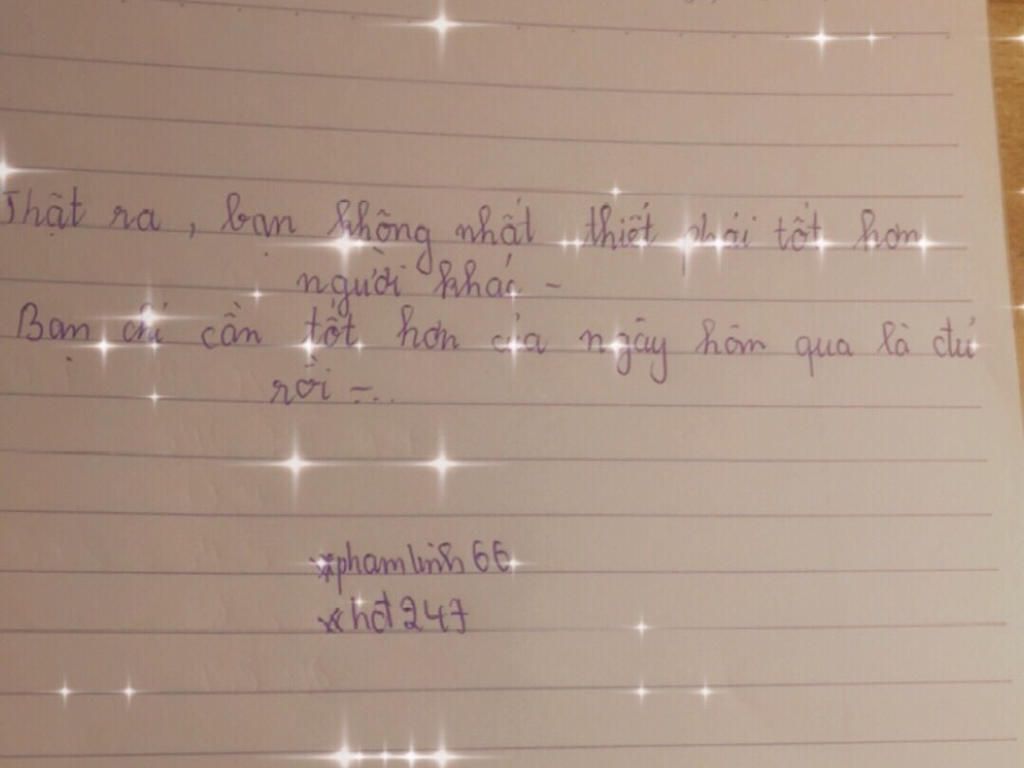 Thật ra, bạn không nhất thiết phải tốt hơn
người khác -
Bạn chỉ cần tốt hơn của ngày hôm qua là đủ
rồi -...
*phamlinh66
*hđ247